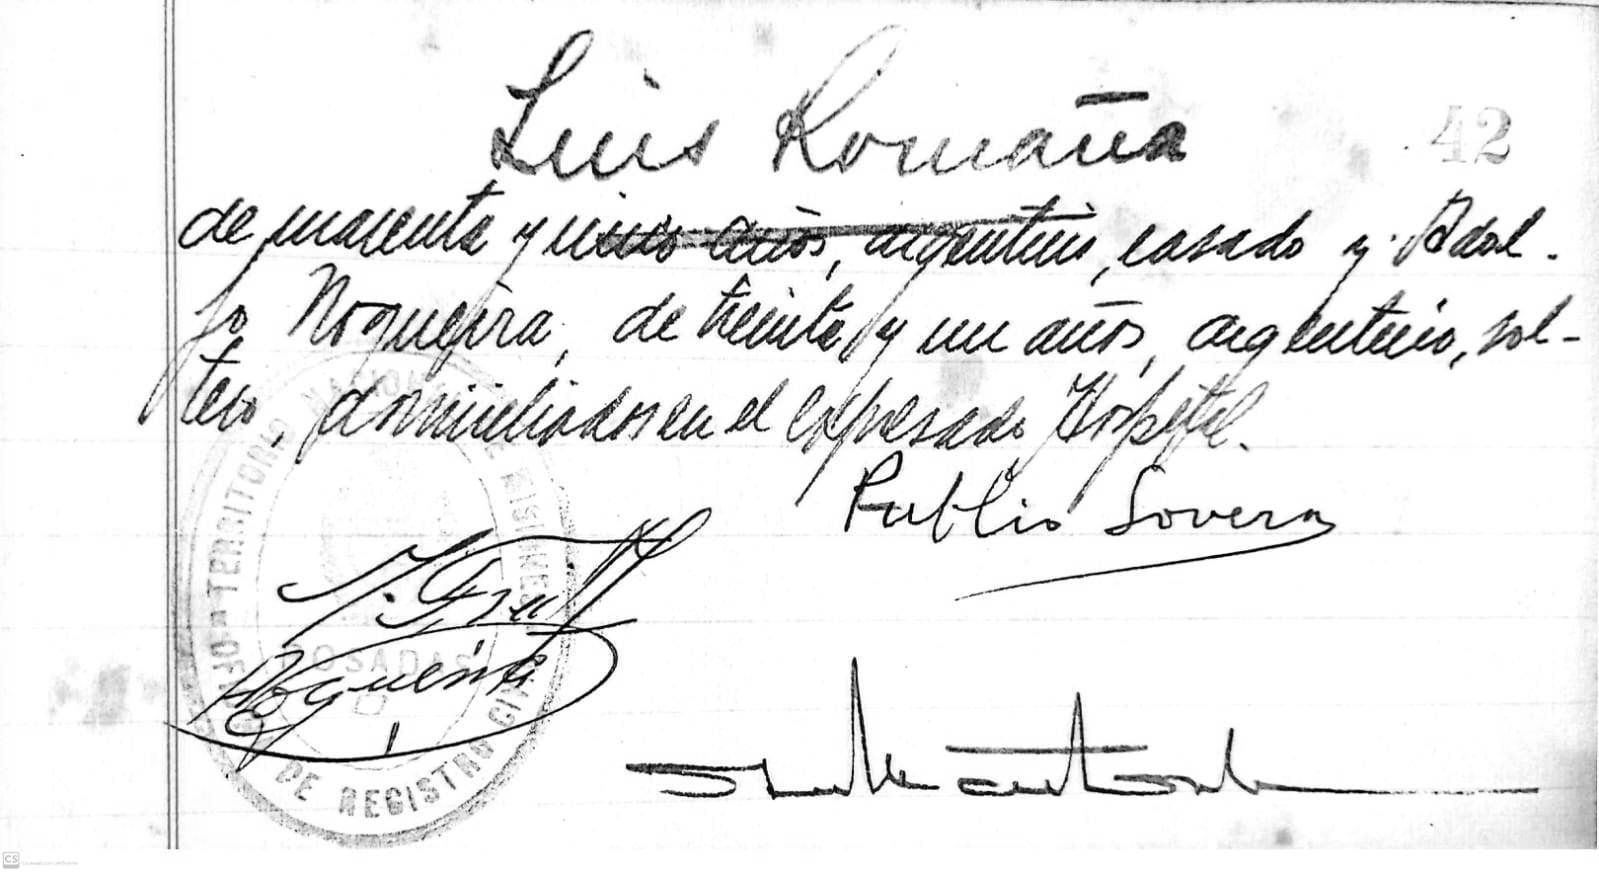 Luis Romaña
42
de cuarenta y cinco años, argentino, casado y Adol-
fo Nogueira, de treinta y un años, argentino, sol-
tero, domiciliados en el expresado Hospital.
Publio Lovera
TERRITORIO NACIONAL DE MISIONES
POSADAS
DE REGISTRO CIVIL
CS